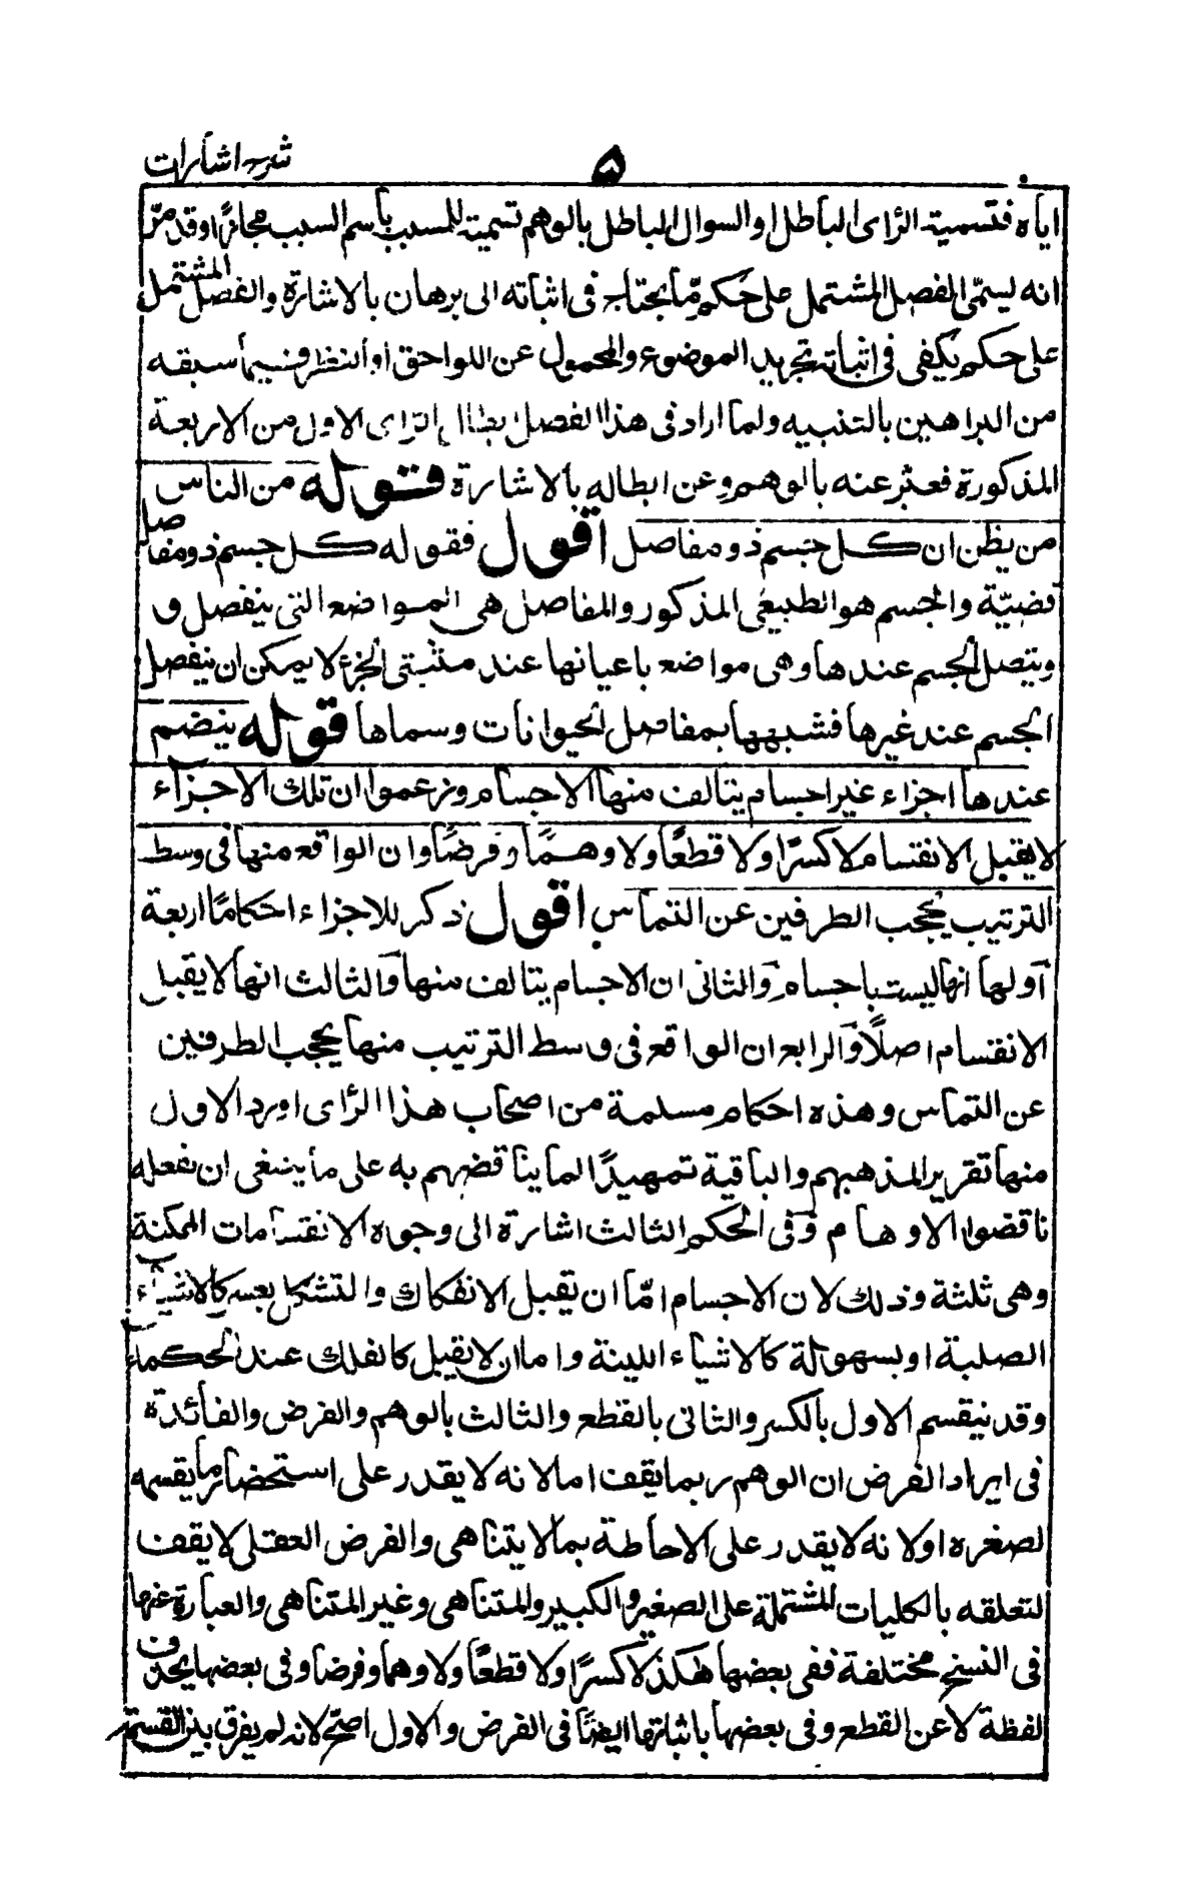 شرح اشارات
۵
اياه فتسمية الرأى الباطل او السوال الباطل بالوهم تسمية للمسبب باسم السبب مجازًا وقد مرّ
انه يسمّى الفصل المشتمل على حكم مّا يحتاج فى اثباته الى برهان بالاشارة والفصل المشتمل
على حكم يكفى فى اثباته تجريد الموضوع والمحمول عن اللواحق او النظر فيما سبقه
من البراهين بالتنبيه ولما اراد فى هذا الفصل ابطال الراى الاول من الاربعة
المذكورة فعبّر عنه بالوهم وعن ابطاله بالاشارة قوله من الناس
من يظن ان كل جسم ذو مفاصل اقول فقوله كل جسم ذو مفاصل
قضيّة والجسم هو الطبيعى المذكور والمفاصل هى المواضع التى ينفصل و
ويتصل الجسم عندها وهى مواضع باعيانها عند مثبتى الجزء لا يمكن ان ينفصل
الجسم عند غيرها فشبهها بمفاصل الحيوانات وسماها قوله ينضم
عندها اجزاء غير اجسام يتالف منها الاجسام وزعموا ان تلك الاجزاء
لا يقبل الانقسام لا كسرًا ولا قطعًا ولا وهمًا وفرضًا وان الواقع منها فى وسط
الترتيب يحجب الطرفين عن التماس اقول ذكر للاجزاء احكامًا اربعة
اولها انها ليست باجسام والثانى ان الاجسام يتالف منها والثالث انها لا يقبل
الانقسام اصلًا والرابع ان الواقع فى وسط الترتيب منها يحجب الطرفين
عن التماس وهذه احكام مسلمة من اصحاب هذا الرأى اورد الاول
منها تقرير المذهبهم والباقية تمهيدًا لما يناقضهم به على ما ينبغى ان يفعله
ناقضوا الاوهام وفى الحكم الثالث اشارة الى وجوه الانقسامات الممكنة
وهى ثلثة وذلك لان الاجسام امّا ان تقبل الانفكاك والتشكل بعسر كالاشياء
الصلبة او بسهولة كالاشياء اللينة واما ان لا يقبل كالفلك عند الحكماء
وقد ينقسم الاول بالكسر والثانى بالقطع والثالث بالوهم والفرض والفائدة
فى ايراد الفرض ان الوهم ربما يقف اما لانه لا يقدر على استحضار ما يقسمه
لصغره او لانه لا يقدر على الاحاطة بما لا يتناهى والفرض العقلى لا يقف
لتعلقه بالكليات المشتملة على الصغير والكبير والمتناهى وغير المتناهى والعبارة عنها
فى النسخ مختلفة ففى بعضها هكذا لا كسرًا ولا قطعًا ولا وهما وفرضا وفى بعضها يحذف
لفظة لا عن القطع وفى بعضها باثباتها ايضًا فى الفرض والاول اصح لانه لم يفرق بين القسمة